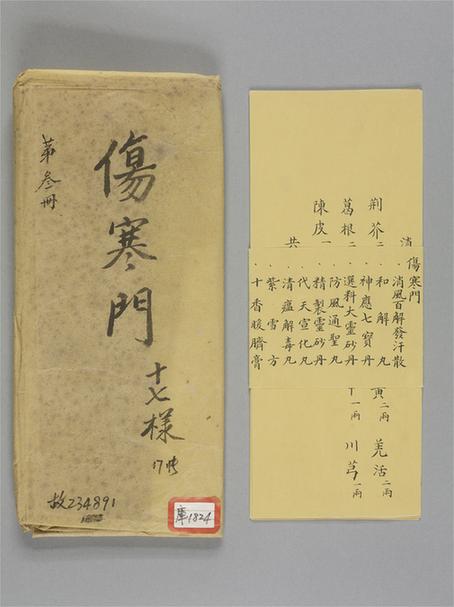 第叁冊
傷寒門
十七樣
17件
故234891
庫1824
消
荊芥二
葛根二
陳皮一
共
傷寒門
消風百解發汗散
和解丸
神應七寶丹
選料大靈砂丹
防風通聖丸
精製靈砂丹
代天宣化丸
清瘟解毒丸
紫雪方
十香脮臍膏
二兩 羌活二兩
一兩 川芎一兩